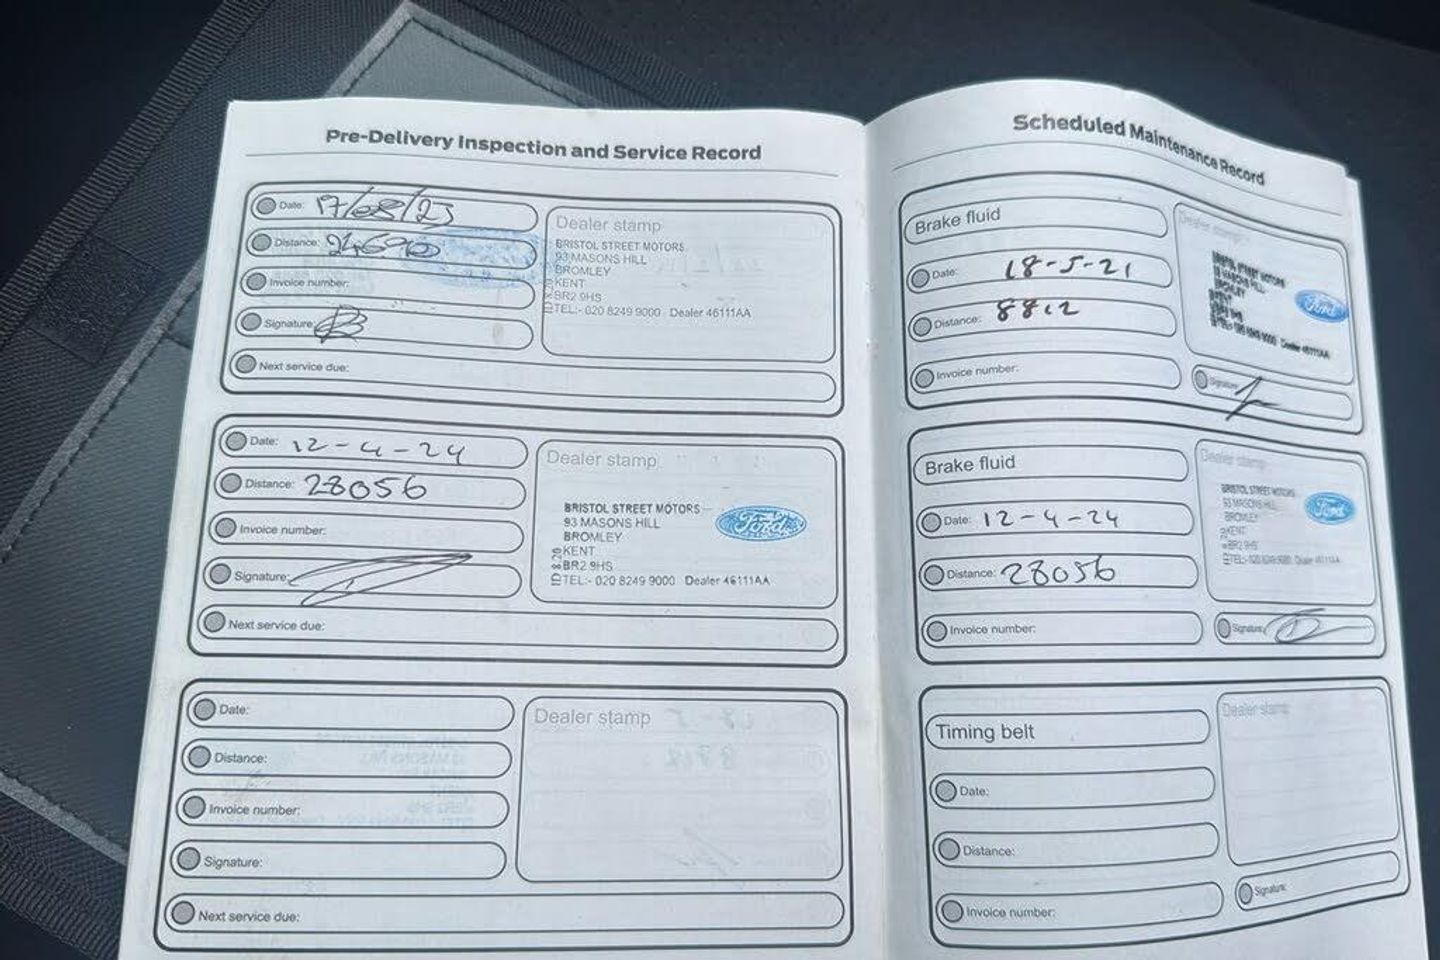 Pre-Delivery Inspection and Service Record
Date: 17/08/23
Distance:
Invoice number:
Signature:
Next service due:
Dealer stamp
BRISTOL STREET MOTORS
93 MASONS HILL
BROMLEY
KENT
BR2 9HS
TEL:- 020 8249 9000 Dealer 46111AA
Date: 12-4-24
Distance: 28056
Invoice number:
Signature:
Next service due:
Dealer stamp
BRISTOL STREET MOTORS
93 MASONS HILL
BROMLEY
KENT
BR2 9HS
TEL:- 020 8249 9000 Dealer 46111AA
Ford
Date:
Distance:
Invoice number:
Signature:
Next service due:
Dealer stamp
Scheduled Maintenance Record
Brake fluid
Date: 18-5-21
Distance: 8812
Invoice number:
Dealer stamp
BRISTOL STREET MOTORS
93 MASONS HILL
BROMLEY
KENT
Dealer 46111AA
Ford
Signature:
Brake fluid
Date: 12-4-24
Distance: 28056
Invoice number:
Dealer stamp
BRISTOL STREET MOTORS
93 MASONS HILL
BROMLEY
KENT
BR2 9HS
TEL:- 020 8249 9000 Dealer 46111AA
Ford
Signature:
Timing belt
Date:
Distance:
Invoice number:
Dealer stamp
Signature: